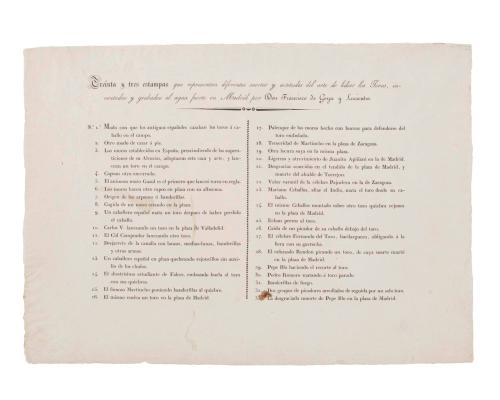 Treinta y tres estampas que representan diferentes suertes y actitudes del arte de lidiar los Toros, in-
ventadas y grabadas al agua fuerte en Madrid por Don Francisco de Goya y Lucientes.
N.º 1.º Modo con que los antiguos españoles cazaban los toros á ca-
ballo en el campo.
2. Otro modo de cazar á pie.
3. Los moros establecidos en España, prescindiendo de las supersti-
ciones de su Alcorán, adoptaron esta caza y arte, y lan-
cean un toro en el campo.
4. Capean otro encerrado.
5. El animoso moro Gazul es el primero que lanceó toros en regla.
6. Los moros hacen otro capeo en plaza con su albornoz.
7. Origen de los arpones ó banderillas.
8. Cogida de un moro estando en la plaza.
9. Un caballero español mata un toro despues de haber perdido
el caballo.
10. Carlos V. lanceando un toro en la plaza de Valladolid.
11. El Cid Campeador lanceando otro toro.
12. Desjarrete de la canalla con lanzas, medias-lunas, banderillas
y otras armas.
13. Un caballero español en plaza quebrando rejoncillos sin auxi-
lio de los chulos.
14. El diestrísimo estudiante de Falces, embozado burla al toro
con sus quiebros.
15. El famoso Martincho poniendo banderillas al quiebro.
16. El mismo vuelca un toro en la plaza de Madrid.
17. Palenque de los moros hecho con burros para defenderse del
toro embolado.
18. Temeridad de Martincho en la plaza de Zaragoza.
19. Otra locura suya en la misma plaza.
20. Ligereza y atrevimiento de Juanito Apiñani en la de Madrid.
21. Desgracias acaecidas en el tendido de la plaza de Madrid, y
muerte del alcalde de Torrejon.
22. Valor varonil de la célebre Pajuelera en la de Zaragoza.
23. Mariano Ceballos, alias el Indio, mata el toro desde su ca-
ballo.
24. El mismo Ceballos montado sobre otro toro quiebra rejones
en la plaza de Madrid.
25. Echan perros al toro.
26. Caida de un picador de su caballo debajo del toro.
27. El célebre Fernando del Toro, barilarguero, obligando á la
fiera con su garrocha.
28. El esforzado Rendon picando un toro, de cuya suerte murió
en la plaza de Madrid.
29. Pepe Illo haciendo el recorte al toro.
30. Pedro Romero matando á toro parado.
31. Banderillas de fuego.
32. Dos grupos de picadores arrollados de seguida por un solo toro.
33. La desgraciada muerte de Pepe Illo en la plaza de Madrid.